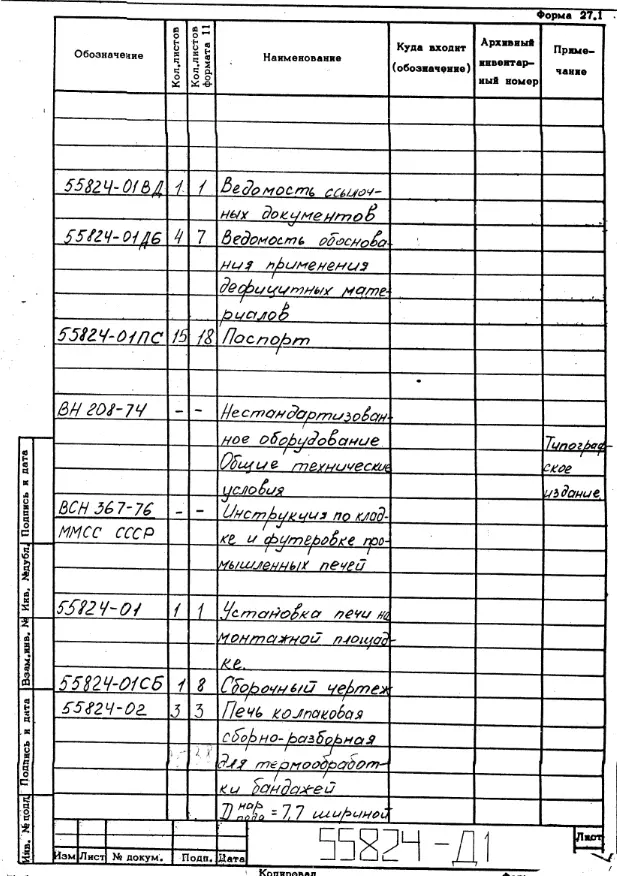 Форма 27.1
Обозначение Кол.листов Кол.листов формата 11 Наименование Куда входит (обозначение) Архивный инвентарный номер Примечание
55824-01ВД 1 1 Ведомость ссылоч-
ных документов
55824-01ДБ 4 7 Ведомость обоснова-
ния применения
дефицитных мате-
риалов
55824-01ПС 15 18 Паспорт
ВН 208-74 - - Нестандартизован-
ное оборудование Типограф-
Общие технические ское
условия издание
ВСН 367-76 - - Инструкция по клад-
ММСС СССР ке и футеровке про-
мышленных печей
55824-01 1 1 Установка печи на
монтажной площад-
ке.
55824-01СБ 1 8 Сборочный чертеж
55824-02 3 3 Печь колпаковая
сборно-разборная
для термообработ-
ки бандажей
D нар = 7,7 шириной
Инв. № подл. Подпись и дата Взам.инв. № Инв. №дубл. Подпись и дата
Изм Лист № докум. Подп. Дата
55824-Д1
Лист
Копировал